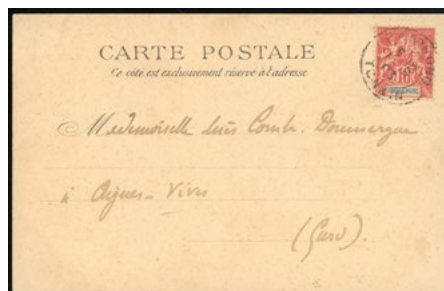 CARTE POSTALE
Ce côté est exclusivement réservé à l'adresse
10
Mademoiselle Comte. Doumergue
à Aigues-Vives
(Gard).